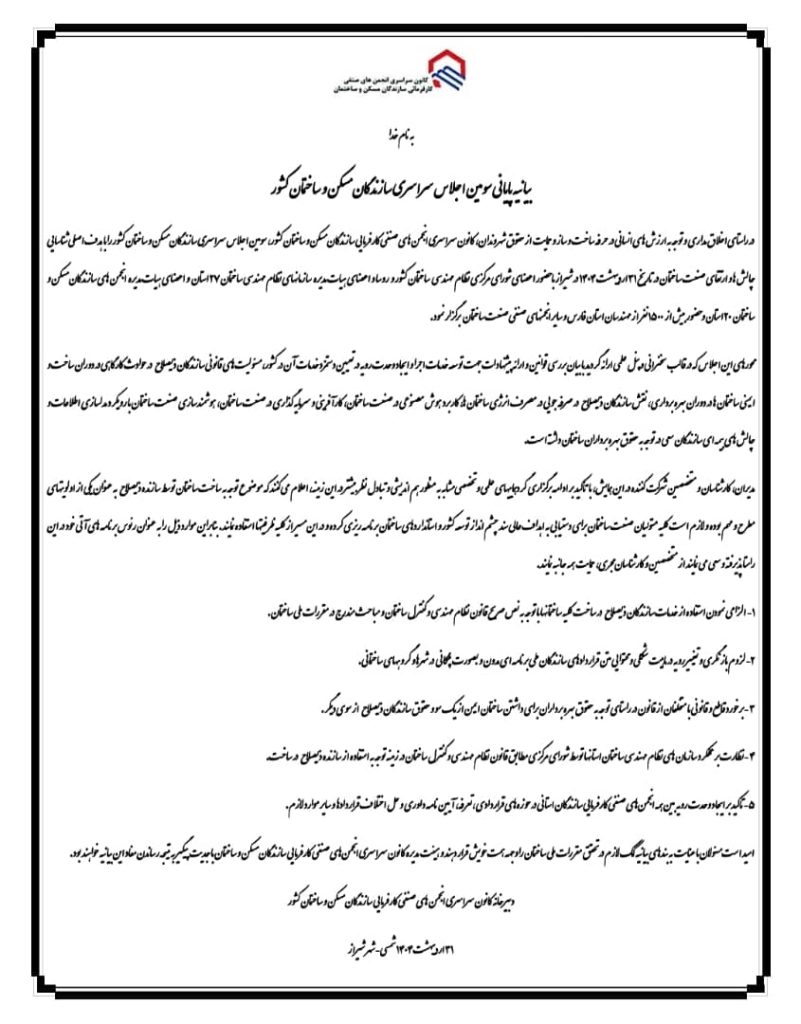 کانون سراسری انجمن های صنفی
کارفرمائی سازندگان مسکن و ساختمان
به نام خدا
بیانیه پایانی سومین اجلاس سراسری سازندگان مسکن و ساختمان کشور
در راستای اخلاق مداری و توجه به ارزش های انسانی در حرفه ساخت و ساز و حمایت از حقوق شهروندان، کانون سراسری انجمن های صنفی کارفرمایی سازندگان مسکن و ساختمان کشور، سومین اجلاس سراسری سازندگان مسکن و ساختمان کشور را با هدف اصلی شناسایی
چالش ها و ارتقای صنعت ساختمان در تاریخ ۳۱ اردیبهشت ۱۴۰۴ در شیراز با حضور اعضای شورای مرکزی نظام مهندسی ساختمان کشور و روسا و اعضای هیات مدیره سازمانهای نظام مهندسی ساختمان ۲۷ استان و اعضای هیات مدیره انجمن های سازندگان مسکن و
ساختمان ۲۰ استان و حضور بیش از ۱۵۰۰ نفر از مهندسان استان فارس و سایر انجمنهای صنفی صنعت ساختمان برگزار نمود.
محورهای این اجلاس که در قالب سخنرانی و پنل علمی ارائه گردید با بیان بررسی قوانین و ارائه پیشنهادات جهت توسعه خدمات اجرا و ایجاد وحدت رویه در تعیین دستمزد خدمات آن در کشور، مسئولیت های قانونی سازندگان ذیصلاح در حوادث کارگاهی در دوران ساخت و
ایمنی ساختمان ها در دوران بهره برداری، نقش سازندگان ذیصلاح در صرفه جویی در مصرف انرژی ساختمان ها، کاربرد هوش مصنوعی در صنعت ساختمان، کارآفرینی و سرمایه گذاری در صنعت ساختمان، هوشمندسازی صنعت ساختمان با رویکرد مدلسازی اطلاعات و
چالش های بیمه ای سازندگان سعی در توجه به حقوق بهره برداران ساختمان داشته است.
مدیران، کارشناسان و متخصصین شرکت کننده در این همایش، با تاکید بر ادامه برگزاری گردهماییهای علمی و تخصصی مشابه به منظور هم اندیشی و تبادل نظر بیشتر در این زمینه، اعلام می کنند که موضوع توجه به ساخت ساختمان توسط سازنده ذیصلاح به عنوان یکی از اولویتهای
مطرح و مهم بوده و لازم است کلیه متولیان صنعت ساختمان برای دستیابی به اهداف عالی سند چشم انداز توسعه کشور و استانداردهای ساختمان برنامه ریزی کرده و در این مسیر از کلیه ظرفیتها استفاده نمایند. بنابراین موارد ذیل را به عنوان رئوس برنامه های آتی خود در این
راستا پذیرفته و سعی می نمایند از متخصصین و کارشناسان مجری، حمایت همه جانبه نمایند.
۱- الزامی نمودن استفاده از خدمات سازندگان ذیصلاح در ساخت کلیه ساختمانها با توجه به نص صریح قانون نظام مهندسی و کنترل ساختمان و مباحث مندرج در مقررات ملی ساختمان.
۲- لزوم بازنگری و تغییر رویه در مابین شکلی و محتوایی متن قراردادهای سازندگان طی برنامه ای مدون و بصورت پلکانی در شهرها و گروههای ساختمانی.
۳- برخورد قاطع و قانونی با متخلفان از قانون در راستای توجه به حقوق بهره برداران برای داشتن ساختمان ایمن از یک سو و حقوق سازندگان ذیصلاح از سوی دیگر.
۴- نظارت بر عملکرد سازمان های نظام مهندسی ساختمان استانها توسط شورای مرکزی مطابق قانون نظام مهندسی و کنترل ساختمان در زمینه توجه به استفاده از سازنده ذیصلاح در ساخت.
۵- تاکید بر ایجاد وحدت رویه بین همه انجمن های صنفی کارفرمایی سازندگان استانی در حوزه های قراردادی، تعرفه، آیین نامه داوری و حل اختلاف قراردادها و سایر موارد لازم.
امید است مسئولان با عنایت به بندهای بیانیه گام لازم در تحقق مقررات ملی ساختمان را وجهه همت خویش قرار دهند و هیئت مدیره کانون سراسری انجمن های صنفی کارفرمایی سازندگان مسکن و ساختمان با جدیت پیگیر به نتیجه رساندن مفاد این بیانیه خواهند بود.
دبیرخانه کانون سراسری انجمن های صنفی کارفرمایی سازندگان مسکن و ساختمان کشور
۳۱ اردیبهشت ۱۴۰۴ شمسی - شهر شیراز